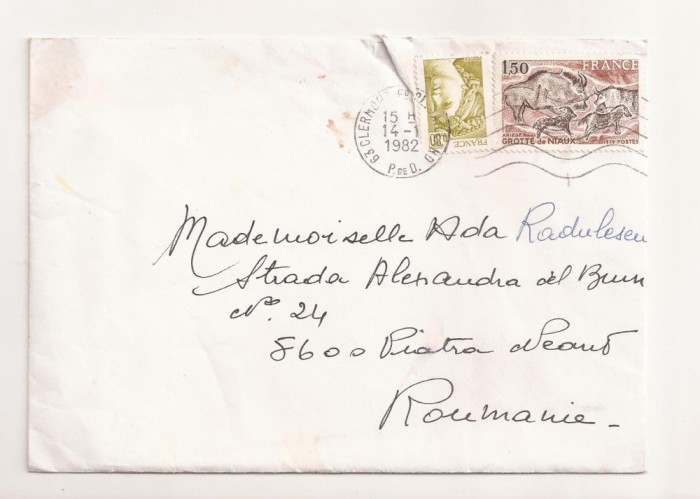 1,50 FRANCE
ARIEGE
GROTTE de NIAUX
POSTES
FRANCE
63 CLERMONT
15 H
14-1
1982
P. DE D.
Mademoiselle Ada Radulescu
Strada Alexandra del Bun
No. 24
5600 Piatra Neamt
Roumanie -